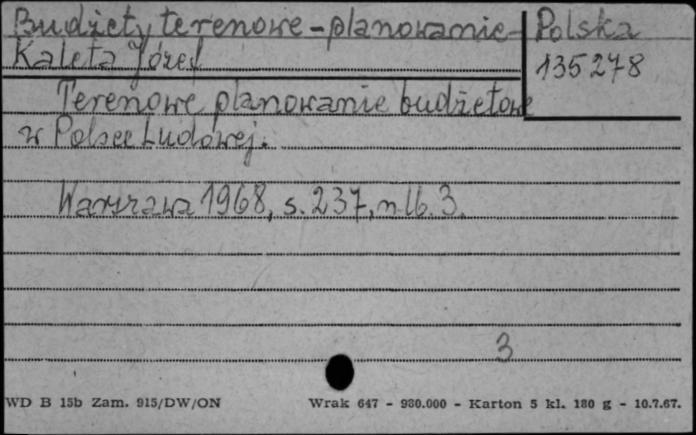 Budżety terenowe - planowanie - Polska
Kaleta Józef
135278
Terenowe planowanie budżetowe
w Polsce Ludowej.
Warszawa 1968, s. 237, nlb. 3.
3
WD B 15b Zam. 915/DW/ON Wrak 647 - 930.000 - Karton 5 kl. 180 g - 10.7.67.